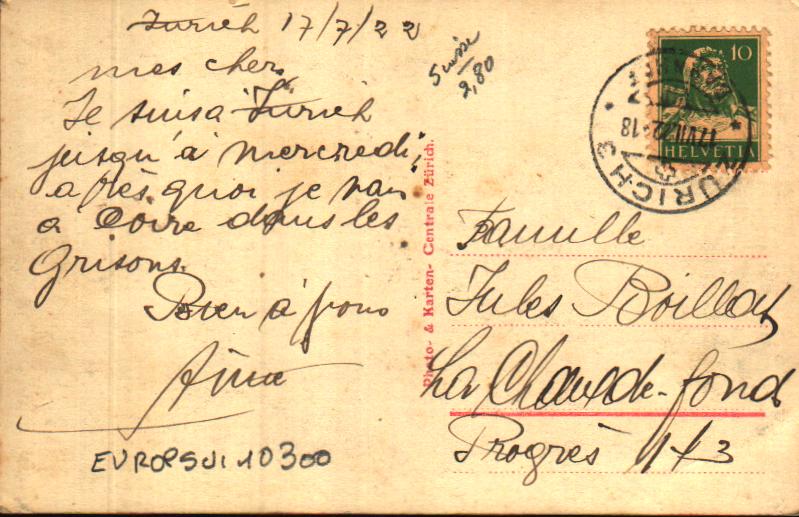 Zurich 17/7/22
mes chers
Je suis à Zurich
jusqu'à mercredi,
après quoi je vais
à Coire dans les
Grisons.
Bien à vous
Suisse
2,80
EUROPSUI 10300
Photo- & Karten- Centrale Zürich.
10
HELVETIA
ZÜRICH 3
17.VII.22-18
Famille
Jules Boillat
La Chaux-de-fonds
Progrès 113